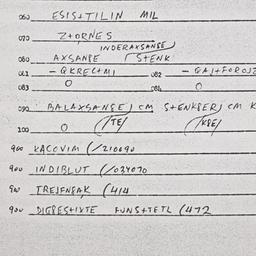 060 ESIS+TILIN MIL
070 Z+ORNES
INDERAXSANSE
080 AXSANSE STENK
081 - QKREC+MI 082 - GAI+FOROJZ
083 0 084 0
090 BALAXSANSE) CM S+ENKBER) CM K
100 0 (/TE/ /KBE/
900 KACOVIM (/210090
900 INDIBLUT (/034070
900 TREJENBAK (414
900 DIGBES+IXTE FUNS+TETL (472